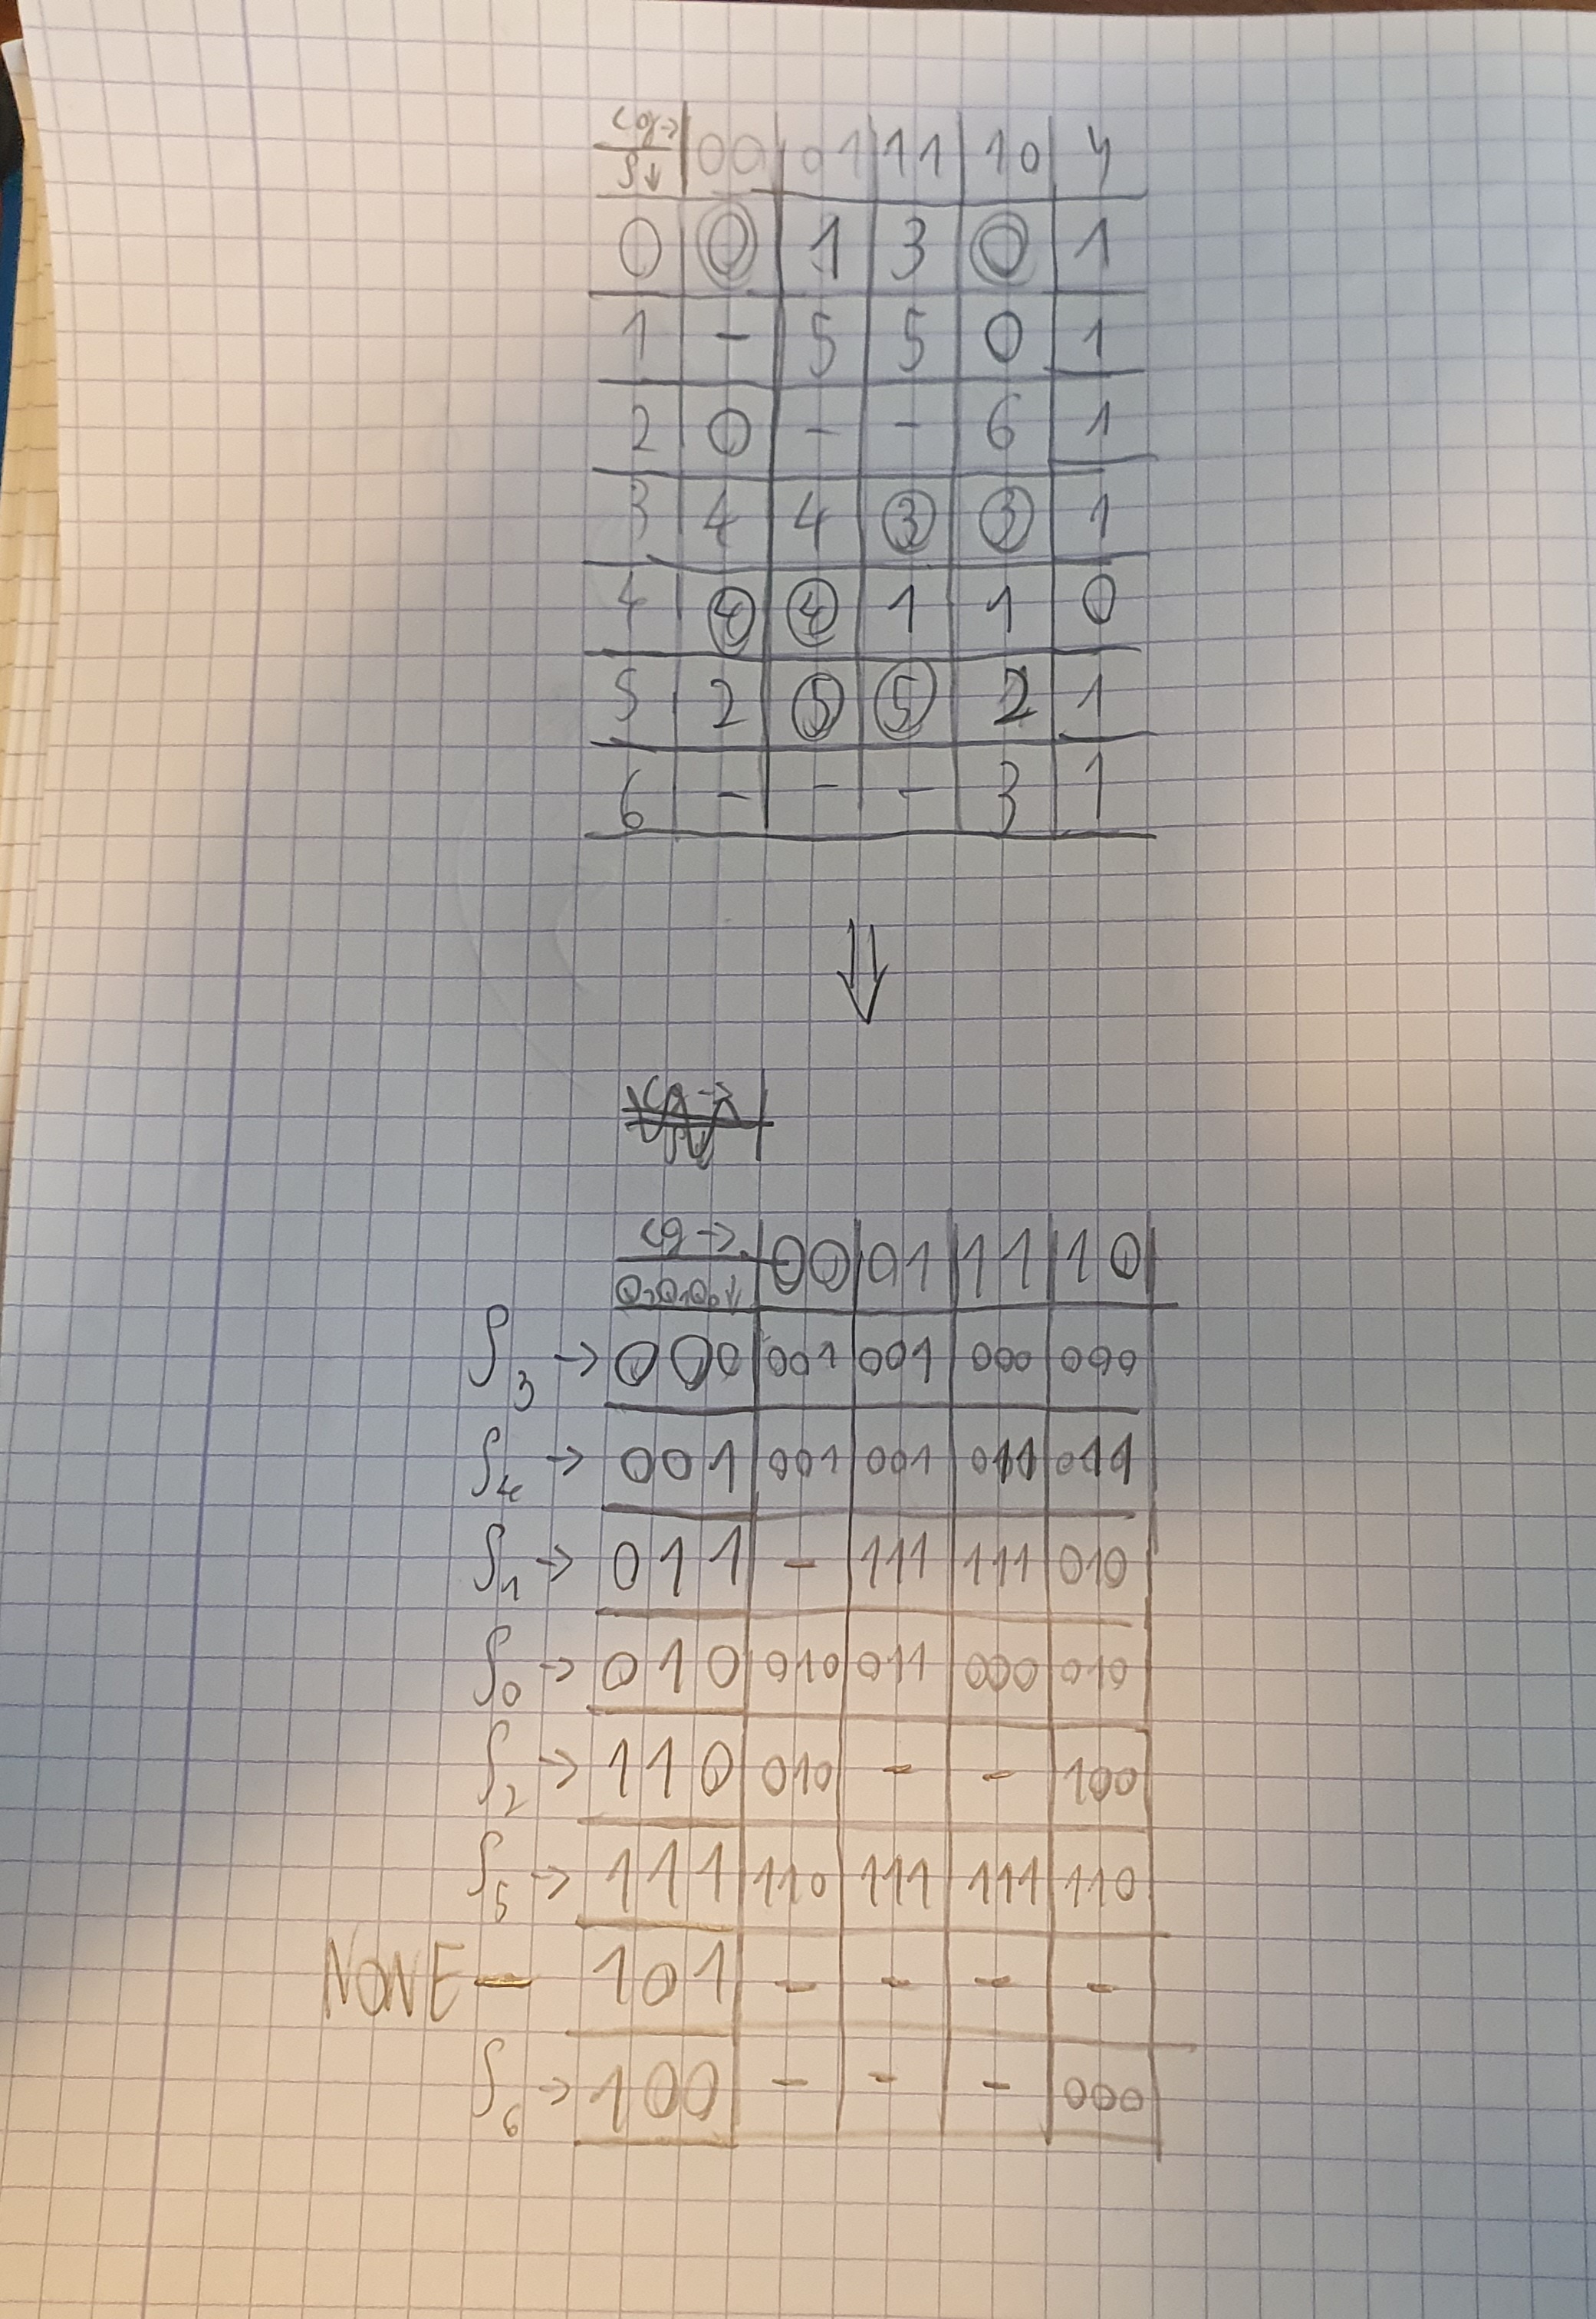 cg→ 00 01 11 10 y
S↓
0 0 1 3 0 1
1 - 5 5 0 1
2 0 - - 6 1
3 4 4 3 3 1
4 4 4 1 1 0
5 2 5 5 2 1
6 - - - 3 1
⇓
cg→ 00 01 11 10
Q2Q1Q0↓
S3 → 000 001 001 000 000
S4 → 001 001 001 011 011
S1 → 011 - 111 111 010
S0 → 010 010 011 000 010
S2 → 110 010 - - 100
S5 → 111 110 111 111 110
NONE — 101 - - - -
S6 → 100 - - - 000